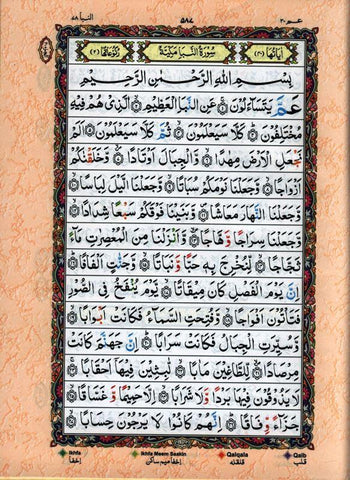 عم ٣٠
٥٨٧
النبا ٧٨
اٰيَاتُهَا (٤٠)
سُوْرَةُ النَّبَاِ مَكِّيَّةٌ
رُكُوْعَاتُهَا (٢)
بِسْمِ اللّٰهِ الرَّحْمٰنِ الرَّحِيْمِ
عَمَّ يَتَسَآءَلُوْنَ ۝ عَنِ النَّبَاِ الْعَظِيْمِ ۝ الَّذِىْ هُمْ فِيْهِ
مُخْتَلِفُوْنَ ۝ كَلَّا سَيَعْلَمُوْنَ ۝ ثُمَّ كَلَّا سَيَعْلَمُوْنَ ۝ اَلَمْ
نَجْعَلِ الْاَرْضَ مِهٰدًا ۝ وَّالْجِبَالَ اَوْتَادًا ۝ وَّخَلَقْنٰكُمْ
اَزْوَاجًا ۝ وَّجَعَلْنَا نَوْمَكُمْ سُبَاتًا ۝ وَّجَعَلْنَا الَّيْلَ لِبَاسًا ۝
وَّجَعَلْنَا النَّهَارَ مَعَاشًا ۝ وَّبَنَيْنَا فَوْقَكُمْ سَبْعًا شِدَادًا ۝
وَّجَعَلْنَا سِرَاجًا وَّهَّاجًا ۝ وَّاَنْزَلْنَا مِنَ الْمُعْصِرٰتِ مَآءً
ثَجَّاجًا ۝ لِّنُخْرِجَ بِهٖ حَبًّا وَّنَبَاتًا ۝ وَّجَنّٰتٍ اَلْفَافًا ۝
اِنَّ يَوْمَ الْفَصْلِ كَانَ مِيْقَاتًا ۝ يَّوْمَ يُنْفَخُ فِى الصُّوْرِ
فَتَاْتُوْنَ اَفْوَاجًا ۝ وَّفُتِحَتِ السَّمَآءُ فَكَانَتْ اَبْوَابًا ۝
وَّسُيِّرَتِ الْجِبَالُ فَكَانَتْ سَرَابًا ۝ اِنَّ جَهَنَّمَ كَانَتْ
مِرْصَادًا ۝ لِّلطَّاغِيْنَ مَاٰبًا ۝ لّٰبِثِيْنَ فِيْهَآ اَحْقَابًا ۝
لَا يَذُوْقُوْنَ فِيْهَا بَرْدًا وَّلَا شَرَابًا ۝ اِلَّا حَمِيْمًا وَّغَسَّاقًا ۝
جَزَآءً وِّفَاقًا ۝ اِنَّهُمْ كَانُوْا لَا يَرْجُوْنَ حِسَابًا ۝
Ikhfa Ikhfa Meem Saakin Qalqala Qalb
اخفا اخفا میم ساکن قلقلہ قلب